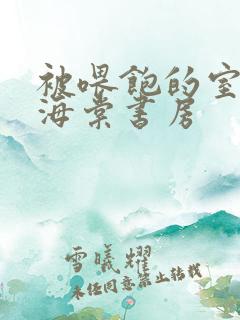 被喂饱的室
海棠书房
雪曦耀
未经同意禁止转载